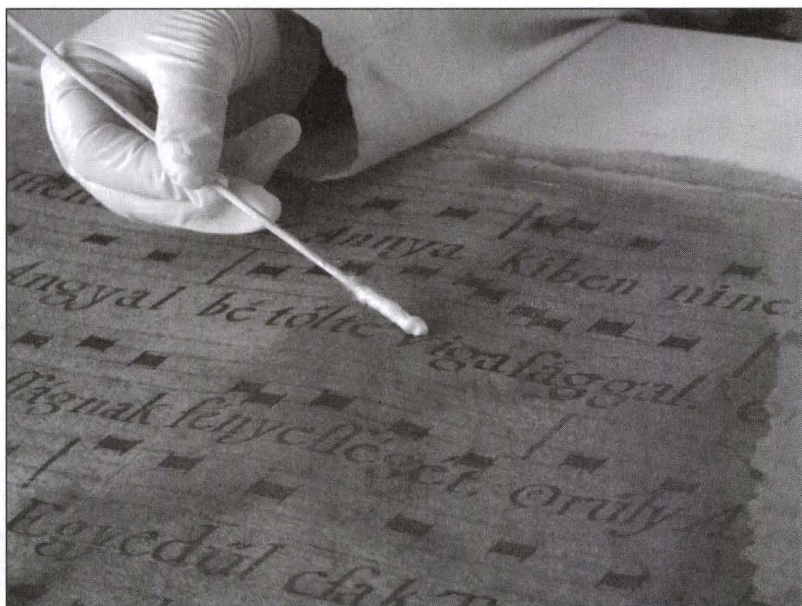 Annya kiben ninc
Angyal bé tőlte vigaſággal.
ſſágnak fényeſſéget. Orúly A
Egyedűl cſak T